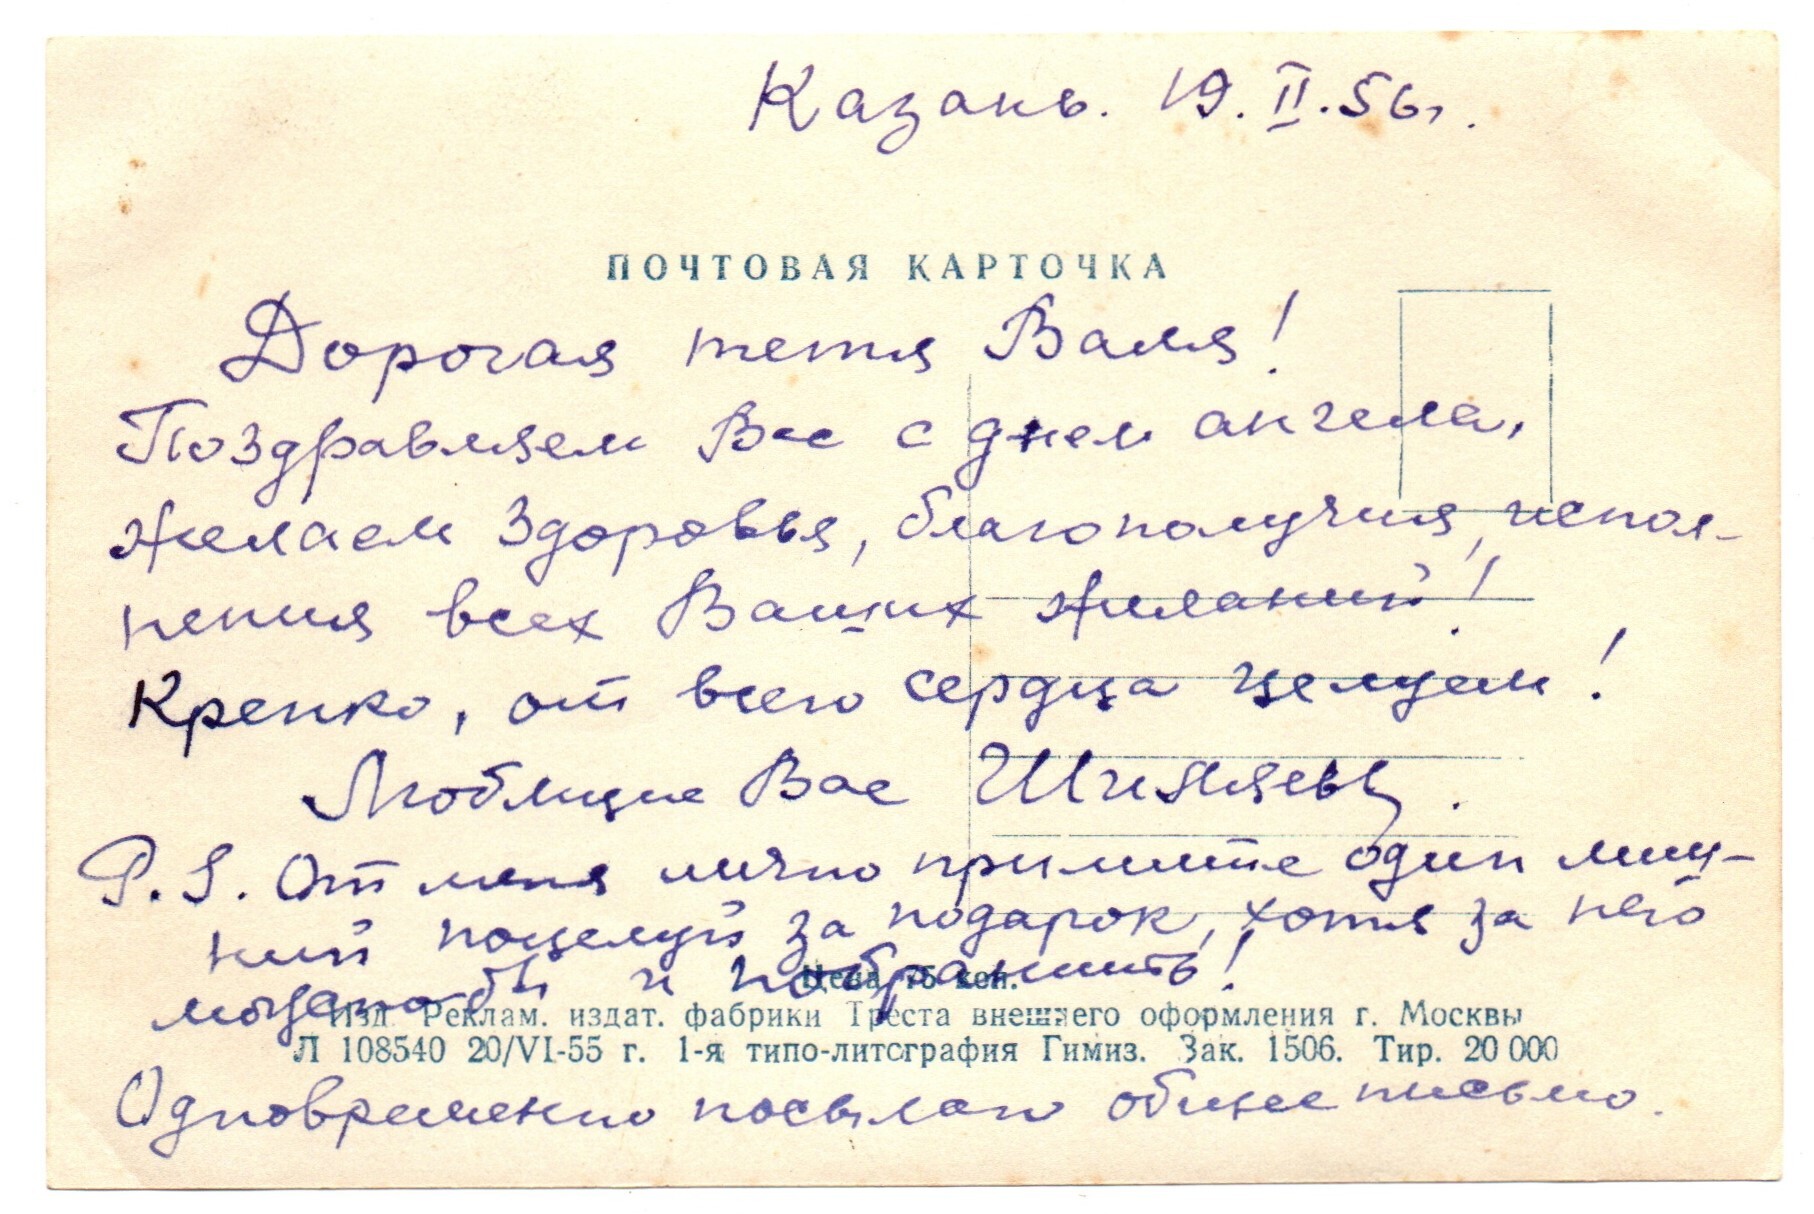 Казань. 19. II. 56г.
ПОЧТОВАЯ КАРТОЧКА
Дорогая тетя Валя!
Поздравляем Вас с днем ангела,
желаем здоровья, благополучия, испол-
нения всех Ваших желаний!
Крепко, от всего сердца целуем!
Любящие Вас
P.S. От меня лично примите один лиш-
ний поцелуй за подарок, хотя за него
можно бы и побранить!
Цена 75 коп.
Изд. Реклам. издат. фабрики Треста внешнего оформления г. Москвы
Л 108540 20/VI-55 г. 1-я типо-литография Гимиз. Зак. 1506. Тир. 20 000
Одновременно посылаю общее письмо.